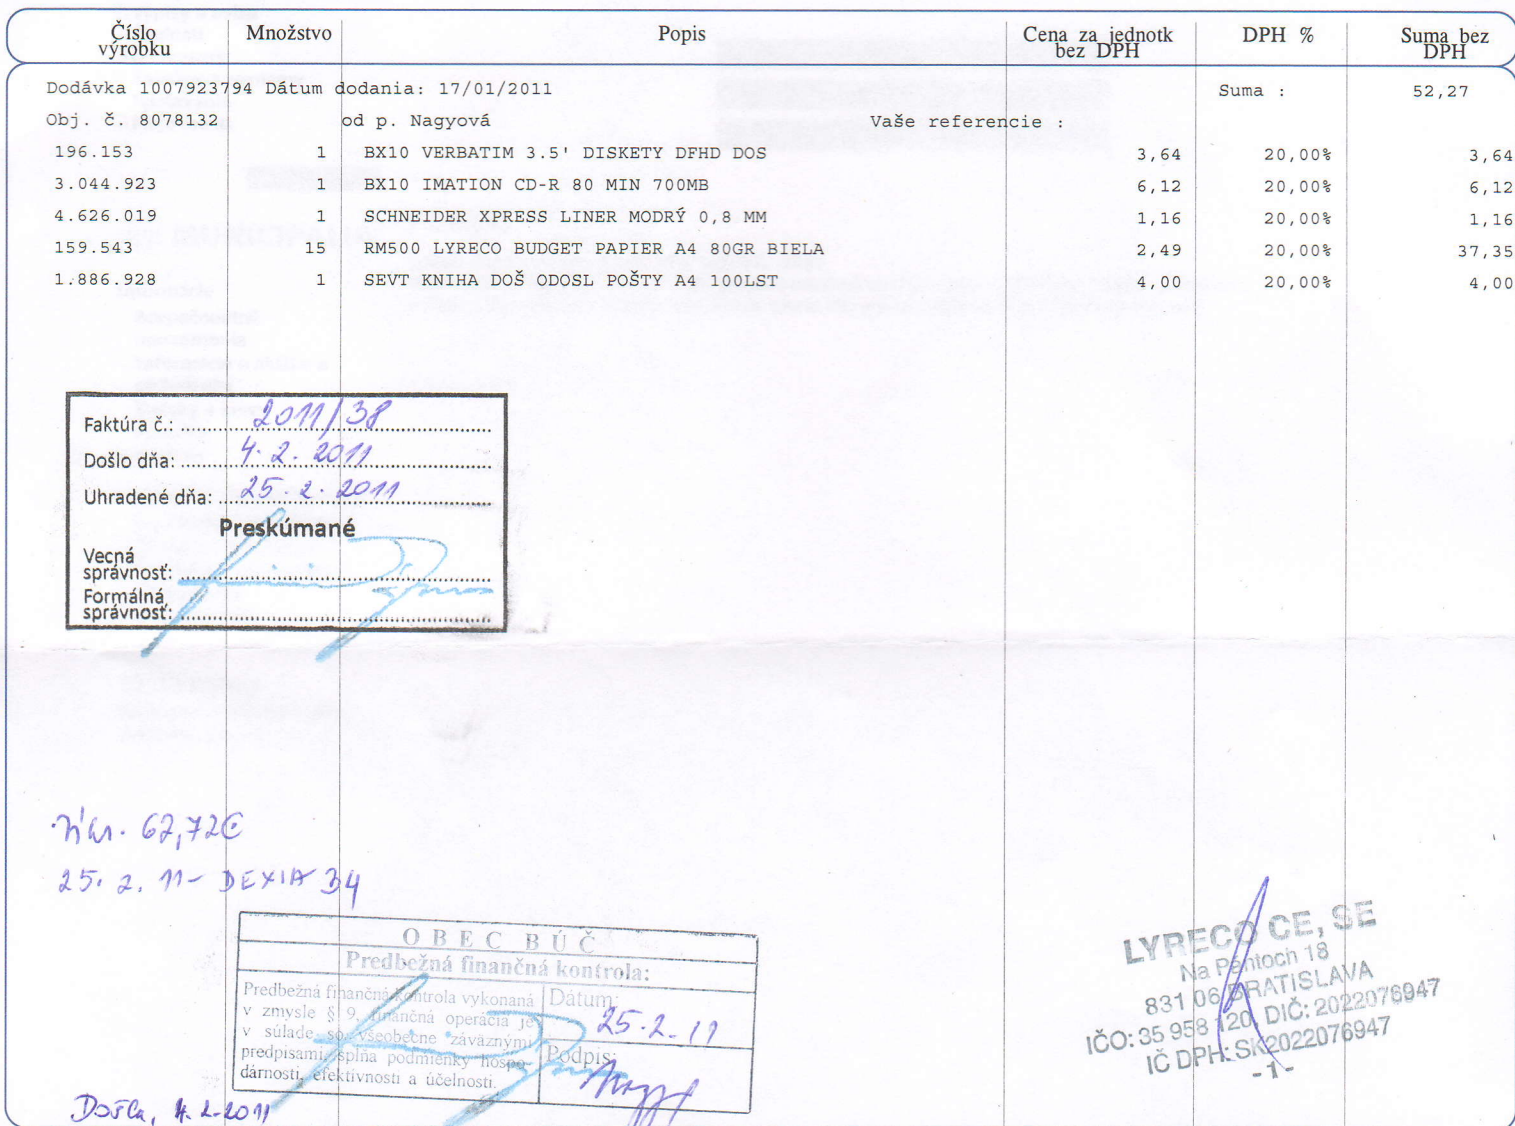 Číslo výrobku Množstvo Popis Cena za jednotk bez DPH DPH % Suma bez DPH
Dodávka 1007923794 Dátum dodania: 17/01/2011 Suma : 52,27
Obj. č. 8078132 od p. Nagyová Vaše referencie :
196.153 1 BX10 VERBATIM 3.5' DISKETY DFHD DOS 3,64 20,00% 3,64
3.044.923 1 BX10 IMATION CD-R 80 MIN 700MB 6,12 20,00% 6,12
4.626.019 1 SCHNEIDER XPRESS LINER MODRÝ 0,8 MM 1,16 20,00% 1,16
159.543 15 RM500 LYRECO BUDGET PAPIER A4 80GR BIELA 2,49 20,00% 37,35
1.886.928 1 SEVT KNIHA DOŠ ODOSL POŠTY A4 100LST 4,00 20,00% 4,00
Faktúra č.: 2011/38
Došlo dňa: 4. 2. 2011
Uhradené dňa: 25. 2. 2011
Preskúmané
Vecná
správnosť:
Formálná
správnosť:
62,72€
25. 2. 11 - DEXIA 34
OBEC BÚČ
Predbežná finančná kontrola:
Predbežná finančná kontrola vykonaná
v zmysle § 9, finančná operácia je
v súlade so všeobecne záväznými
predpismi, spĺňa podmienky hospo-
dárnosti, efektívnosti a účelnosti.
Dátum:
25-2-11
Podpis:
LYRECO CE, SE
Na Pántoch 18
831 06 BRATISLAVA
IČO: 35 958 120, DIČ: 2022076947
IČ DPH: SK2022076947
-1-
Došla, 4. 2. 2011